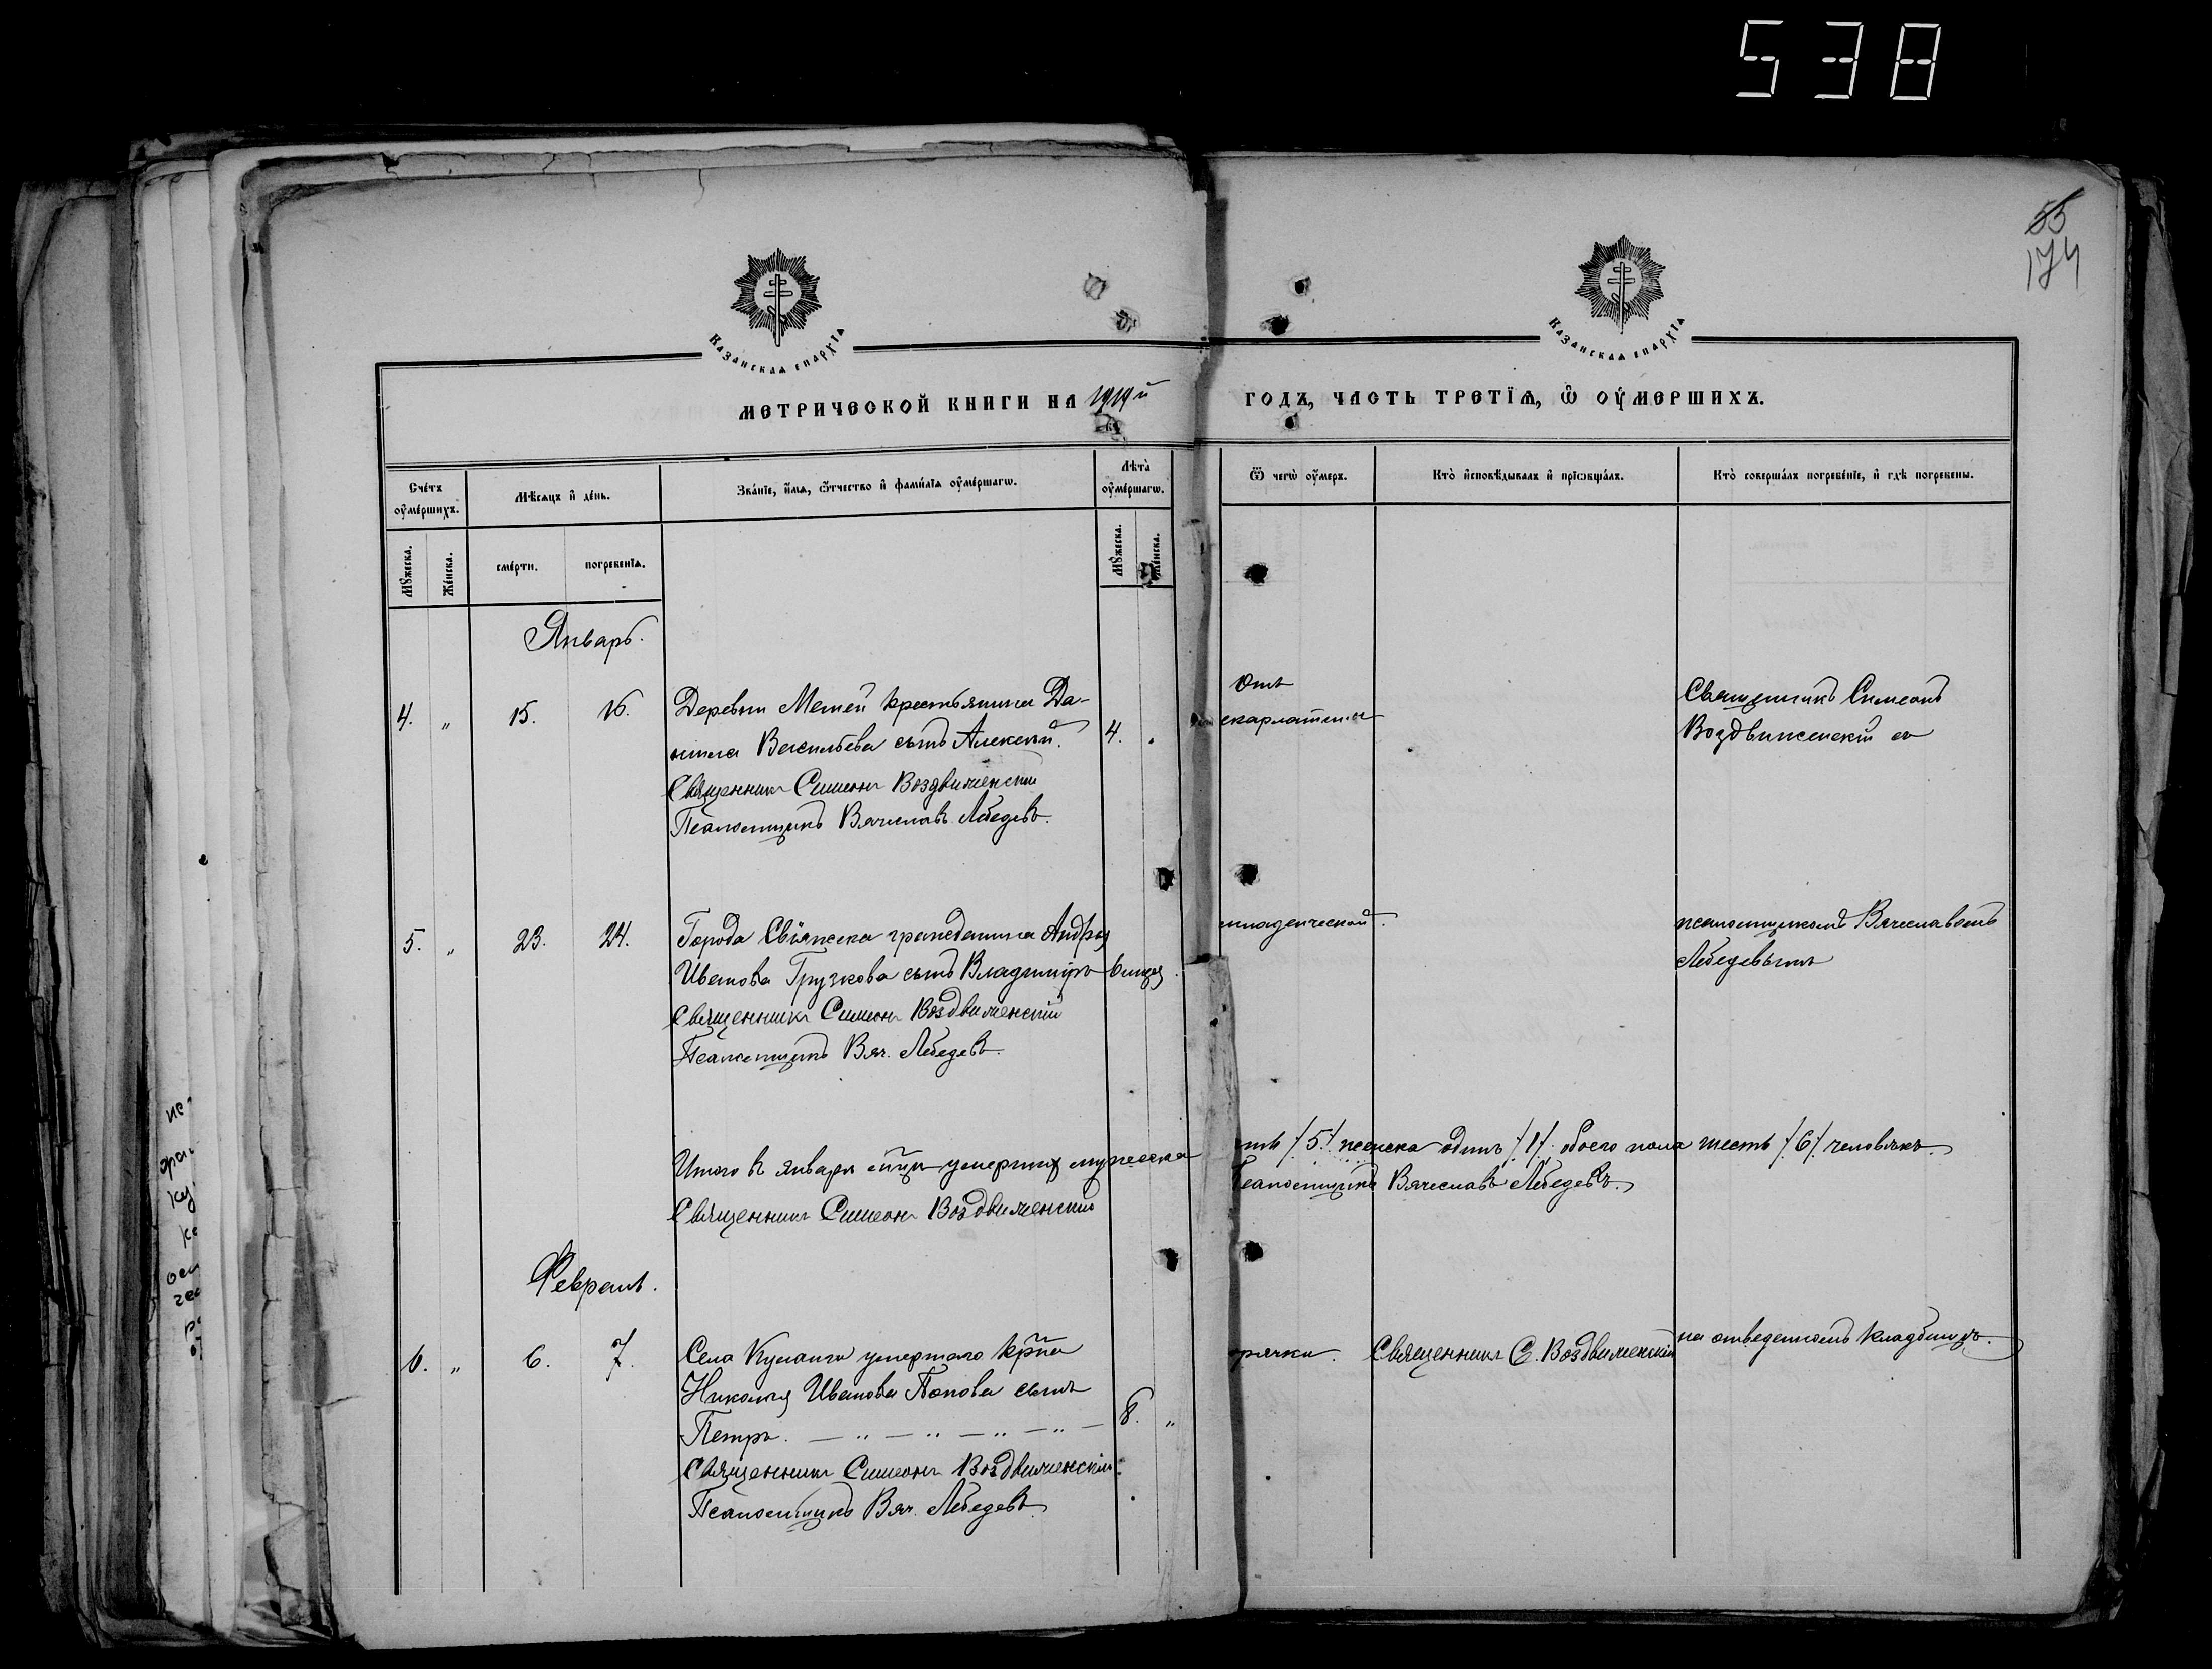 538
55
174
Казанскаѧ епархїѧ
Казанскаѧ епархїѧ
МЕТРИЧЕСКОЙ КНИГИ НА 1919й
ГОДЪ, ЧАСТЬ ТРЕТЇѦ, Ѿ ОУМЕРШИХЪ.
Сче́тъ оумершихъ.
Мѣсѧцъ и день.
Зва́нїе, имѧ, отчество и фамилїѧ оуме́ршагѡ.
Лѣта̀ оуме́ршагѡ.
Ѿ чегѡ̀ оумеръ.
Кто̀ исповѣ́дывалъ и прїѡбща́лъ.
Кто̀ соверша́лъ погребе́нїе, и гдѣ погребены.
Мꙋжеска.
Же́нска.
сме́рти.
погребенїѧ.
Мꙋжеска.
Же́нска.
Январь.
4. „ 15. 16. Деревни Мемей крестьянина Да-
нила Васильева сынъ Алексѣй. 4.
Священникъ Симеонъ Воздвиженскій
Псаломщикъ Вячеславъ Лебедевъ.
Отъ
скарлатины
Священникъ Симеонъ
Воздвиженскій съ
5. „ 23. 24. Города Свіяжска гражданина Андрея
Иванова Грузкова сынъ Владиміръ
Священникъ Симеонъ Воздвиженскій
Псаломщикъ Вяч. Лебедевъ.
младенческой.
псаломщикомъ Вячеславомъ
Лебедевымъ
Итого въ январѣ мѣцѣ умершихъ мужеска
пять /5/ женска одинъ /1/, обоего пола шесть /6/ человѣкъ.
Священникъ Симеонъ Воздвиженскій
Псаломщикъ Вячеславъ Лебедевъ.
Февраль.
6. „ 6. 7. Села Куланги умершаго кр̃на
Николая Иванова Попова сынъ
Петръ. — „ — „ — „ — „ — 8. „
Священникъ Симеонъ Воздвиженскій
Псаломщикъ Вяч. Лебедевъ.
горячки.
Священникъ С. Воздвиженскій
на отведенномъ кладбищѣ.